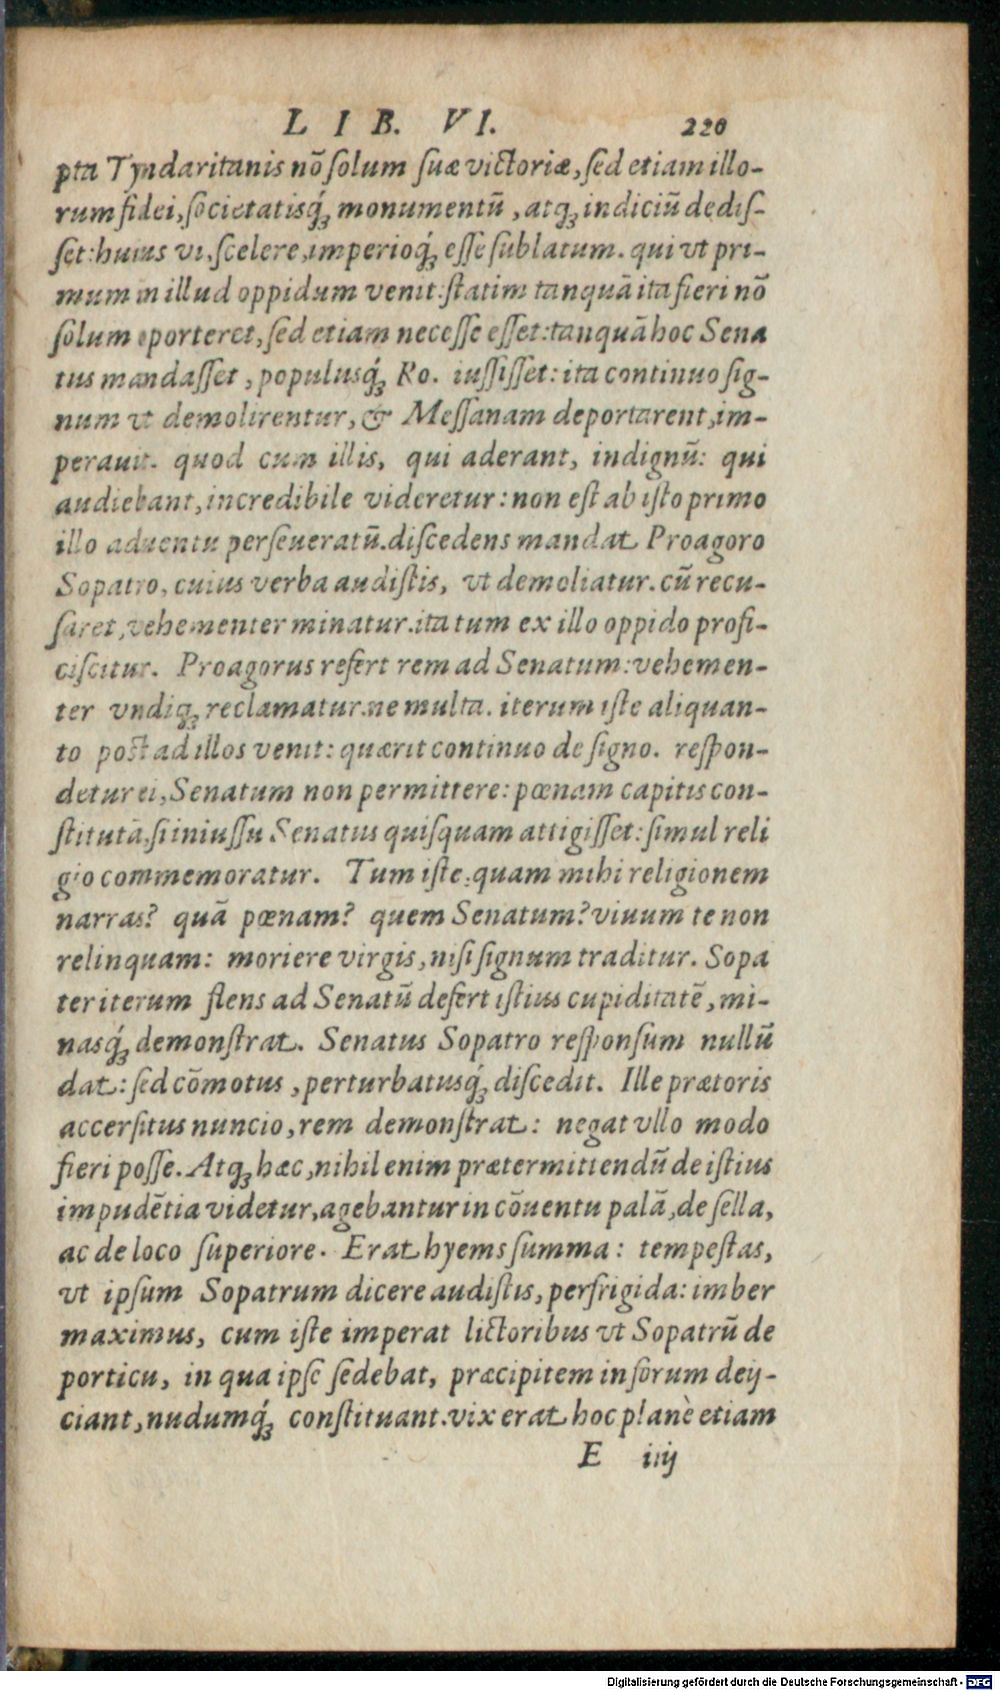 LIB. VI. 220
pta Tyndaritanis nõ ſolum ſuæ victoriæ, ſed etiam illo-
rum fidei, ſocietatisq́ꝫ monumentũ, atqꝫ indiciũ dediſ-
ſet: huius vi, ſcelere, imperioq́ꝫ eſſe ſublatum. qui vt pri-
mum in illud oppidum venit: ſtatim tanquã ita fieri nõ
ſolum oporteret, ſed etiam neceſſe eſſet: tanquã hoc Sena
tus mandaſſet, populusq́ꝫ Ro. iuſſiſſet: ita continuo ſig-
num vt demolirentur, & Meſſanam deportarent, im-
perauit. quod cum illis, qui aderant, indignũ: qui
audiebant, incredibile videretur: non eſt ab iſto primo
illo aduentu perſeueratũ. diſcedens mandat Proagoro
Sopatro, cuius verba audiſtis, vt demoliatur. cũ recu-
ſaret, vehementer minatur. ita tum ex illo oppido profi-
ciſcitur. Proagorus refert rem ad Senatum: vehemen-
ter vndiqꝫ reclamatur. ne multa. iterum iſte aliquan-
to poſt ad illos venit: quærit continuo de ſigno. reſpon-
detur ei, Senatum non permittere: pœnam capitis con-
ſtitutã, ſi iniuſſu Senatus quiſquam attigiſſet: ſimul reli
gio commemoratur. Tum iſte, quam mihi religionem
narras? quã pœnam? quem Senatum? viuum te non
relinquam: moriere virgis, niſi ſignum traditur. Sopa
ter iterum flens ad Senatũ defert iſtius cupiditatẽ, mi-
nasq́ꝫ demonſtrat. Senatus Sopatro reſponſum nullũ
dat: ſed cõmotus, perturbatusq́ꝫ diſcedit. Ille prætoris
accerſitus nuncio, rem demonſtrat: negat vllo modo
fieri poſſe. Atqꝫ hæc, nihil enim prætermittendũ de iſtius
impudẽtia videtur, agebantur in cõuentu palã, de ſella,
ac de loco ſuperiore. Erat hyems ſumma: tempeſtas,
vt ipſum Sopatrum dicere audiſtis, perfrigida: imber
maximus, cum iſte imperat lictoribus vt Sopatrũ de
porticu, in qua ipſe ſedebat, præcipitem in forum deij-
ciant, nudumq́ꝫ conſtituant. vix erat hoc planè etiam
E iiij
Digitalisierung gefördert durch die Deutsche Forschungsgemeinschaft - DFG